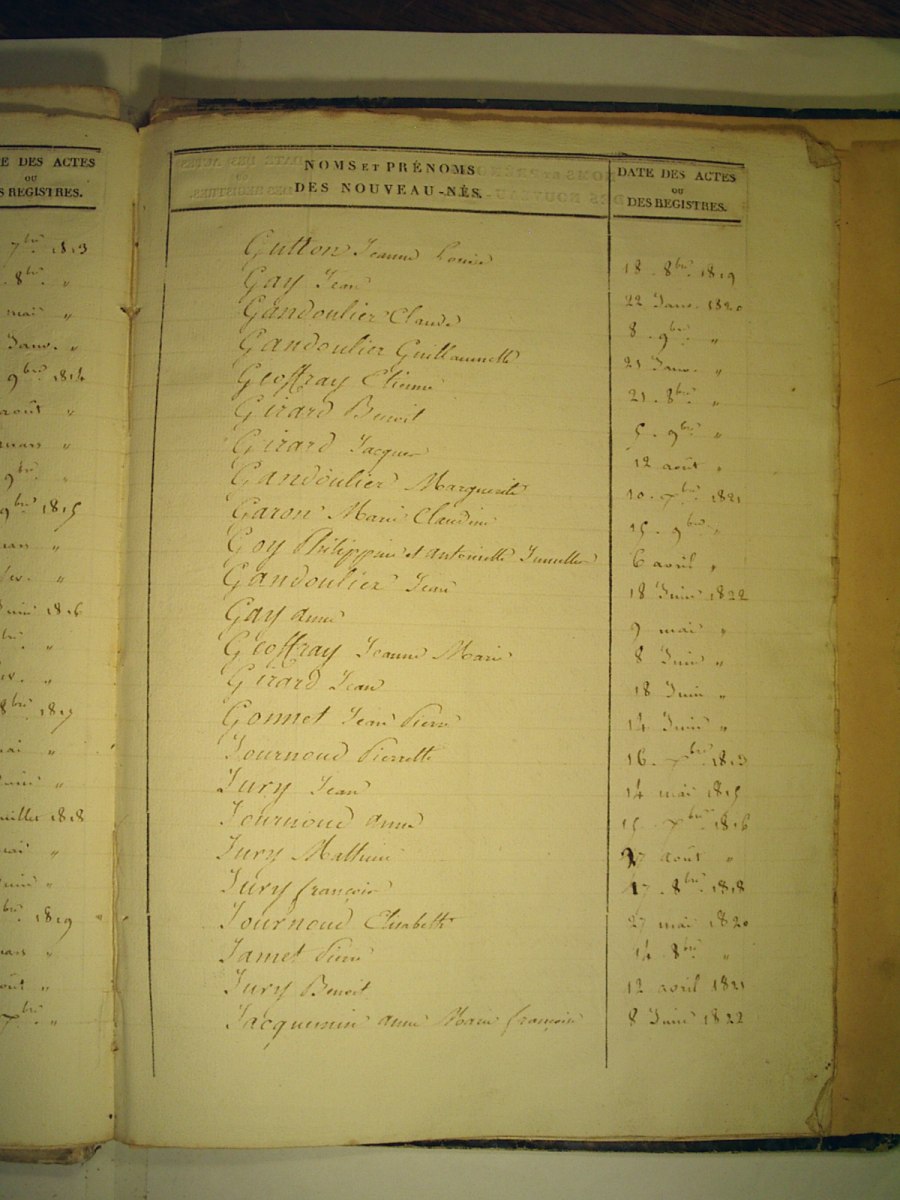 E DES ACTES
OU
S REGISTRES.
7bre 1813
8bre "
mai "
Janv. "
9bre 1814
août "
mars "
9bre "
9bre 1815
mars "
"
Juin 1816
bre "
"
8bre 1817
mai "
Juin "
Juillet 1818
mai "
Juin "
bre 1819
mars "
août "
xbre "
NOMS ET PRÉNOMS
DES NOUVEAU-NÉS.
DATE DES ACTES
OU
DES REGISTRES.
Gutton Jeanne Louise 18. 8bre 1819
Gay Jean 22 Janv. 1820
Gandoulier Claude 8. 9bre "
Gandoulier Guillaumette 21 Janv. "
Geoffray Etienne 21. 8bre "
Girard Benoit 5. 9bre "
Girard Jacques 12 août "
Gandoulier Marguerite 10. xbre 1821
Garon Marie Claudine 15. 9bre "
Goy Philippine et antoinette Jumelles 6 avril "
Gandoulier Jean 18 Juin 1822
Gay anne 9 mai "
Geoffray Jeanne Marie 8 Juin "
Girard Jean 18 Juin "
Gonnet Jean Pierre 14 Juin "
Journoud Pierrette 16. xbre 1813
Jury Jean 14 mai 1815
Journoud anne 15. xbre 1816
Jury Mathieu 27 août "
Jury françois 17. 8bre 1818
Journoud Elisabeth 27 mai 1820
Jamet Pierre 14. 8bre "
Jury Benoit 12 avril 1821
Jacquemin anne Marie françoise 8 Juin 1822